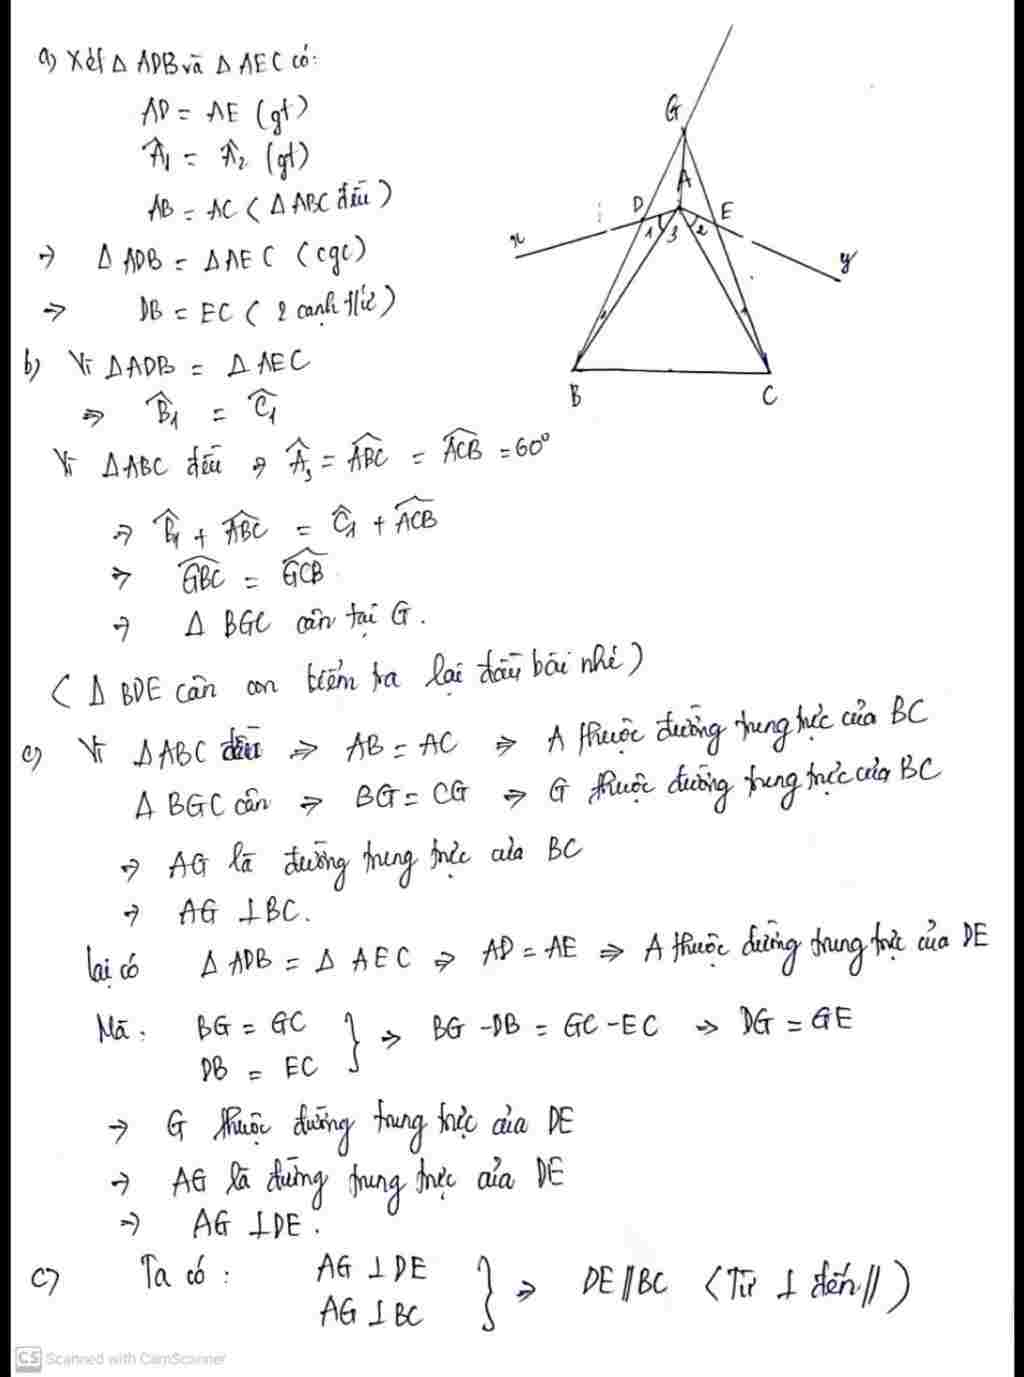 a) Xét Δ ADB và Δ AEC có:
AD = AE (gt)
Â₁ = Â₂ (gt)
AB = AC (Δ ABC đều)
⇒ Δ ADB = Δ AEC (cgc)
⇒ DB = EC (2 cạnh t/ứ)
G
A
D
E
1
3
2
x
y
B
C
b) Vì Δ ADB = Δ AEC
⇒ B̂₁ = Ĉ₁
Vì Δ ABC đều ⇒ Â₃ = ABC^ = ACB^ = 60°
⇒ B̂₁ + ABC^ = Ĉ₁ + ACB^
⇒ GBC^ = GCB^
⇒ Δ BGC cân tại G.
(Δ BDE cân con kiểm tra lại đầu bài nhé)
c) Vì Δ ABC đều ⇒ AB = AC ⇒ A thuộc đường trung trực của BC
Δ BGC cân ⇒ BG = CG ⇒ G thuộc đường trung trực của BC
⇒ AG là đường trung trực của BC
⇒ AG ⊥ BC.
lại có Δ ADB = Δ AEC ⇒ AD = AE ⇒ A thuộc đường trung trực của DE
Mà: BG = GC
DB = EC } ⇒ BG - DB = GC - EC ⇒ DG = GE
⇒ G thuộc đường trung trực của DE
⇒ AG là đường trung trực của DE
⇒ AG ⊥ DE.
c) Ta có: AG ⊥ DE
AG ⊥ BC } ⇒ DE // BC (Từ ⊥ đến //)
CS Scanned with CamScanner